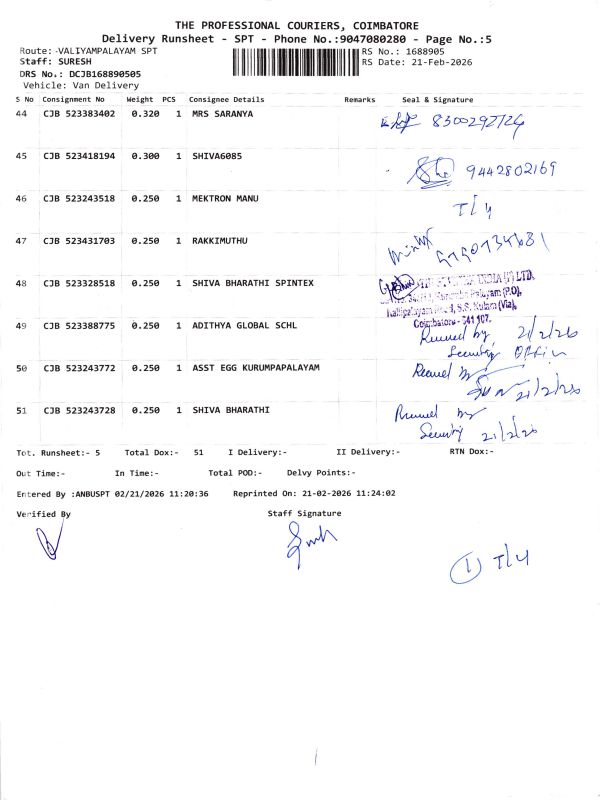 THE PROFESSIONAL COURIERS, COIMBATORE
Delivery Runsheet - SPT - Phone No.:9047080280 - Page No.:5
Route: VALIYAMPALAYAM SPT RS No.: 1688905
Staff: SURESH RS Date: 21-Feb-2026
DRS No.: DCJB168890505
Vehicle: Van Delivery
S No Consignment No Weight PCS Consignee Details Remarks Seal & Signature
44 CJB 523383402 0.320 1 MRS SARANYA
45 CJB 523418194 0.300 1 SHIVA6085 9442802169
46 CJB 523243518 0.250 1 MEKTRON MANU T/4
47 CJB 523431703 0.250 1 RAKKIMUTHU
48 CJB 523328518 0.250 1 SHIVA BHARATHI SPINTEX INDIA (P) LTD,
Coimbatore - 641 107.
49 CJB 523388775 0.250 1 ADITHYA GLOBAL SCHL by 21/2/26
Security Officer
50 CJB 523243772 0.250 1 ASST EGG KURUMPAPALAYAM
21/2/26
51 CJB 523243728 0.250 1 SHIVA BHARATHI by
Security 21/2/26
Tot. Runsheet:- 5 Total Dox:- 51 I Delivery:- II Delivery:- RTN Dox:-
Out Time:- In Time:- Total POD:- Delvy Points:-
Entered By :ANBUSPT 02/21/2026 11:20:36 Reprinted On: 21-02-2026 11:24:02
Verified By Staff Signature
1 T/4